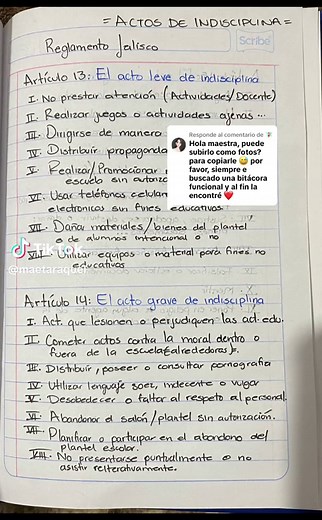 = ACTOS DE INDISCIPLINA =
Reglamento Jalisco
Scribe
Artículo 13: El acto leve de indisciplina
I. No prestar atención (Actividades/Docente)
II. Realizar juegos o actividades ajenas ...
III. Dirigirse de manera
IV. Distribuir propaganda
V. Realizar/Promocionar
escuela sin autoriz
VI. Usar teléfonos celular
electrónicos sin fines educativos
VII. Dañar materiales/bienes del plantel
o de alumnos intencional o no
VIII. Utilizar equipos o material para fines no
educativos
Responde al comentario de
Hola maestra, puede
subirlo como fotos?
para copiarle 😅 por
favor, siempre e
buscado una bitácora
funcional y al fin la
encontré ❤️
TikTok
@maetaraquel
Artículo 14: El acto grave de indisciplina
I. Act. que lesionen o perjudiquen las act. edu.
II. Cometer actos contra la moral dentro o
fuera de la escuela (alrededores).
III. Distribuir, poseer o consultar pornografía
IV. Utilizar lenguaje soez, indecente o vulgar
V. Desobedecer o faltar al respeto al personal.
VI. Abandonar el salón/plantel sin autorización.
VII. Planificar o participar en el abandono del
plantel escolar.
VIII. No presentarse puntualmente o no
asistir reiterativamente.